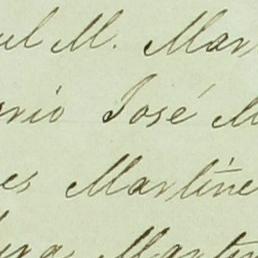 ul M. Mar
nio José M
es Martine
Martin